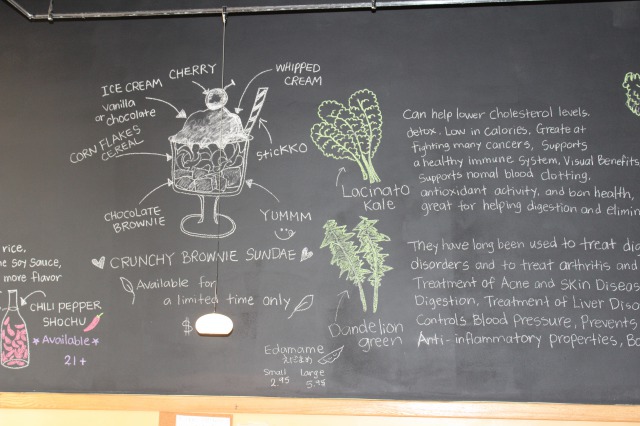 ICE CREAM
vanilla
or chocolate
CHERRY
WHIPPED
CREAM
CORN FLAKES
CEREAL
stickko
CHOCOLATE
BROWNIE
YUMMM
CRUNCHY BROWNIE SUNDAE
Available for
a limited time only
$
rice,
soy sauce,
more flavor
CHILI PEPPER
SHOCHU
*Available*
21+
Lacinato
Kale
Can help lower cholesterol levels.
detox. Low in calories, Great at
fighting many cancers, Supports
a healthy immune system, Visual Benefits,
supports nomal blood clotting,
antioxidant activity, and bon health,
great for helping digestion and elimin
Dandelion
green
They have long been used to treat dig
disorders and to treat arthritis and
Treatment of Acne and Skin Diseas
Digestion, Treatment of Liver Diso
Controls Blood Pressure, Prevents
Anti-inflammatory properties, Bo
Edamame
えだまめ
Small Large
2.95 5.95